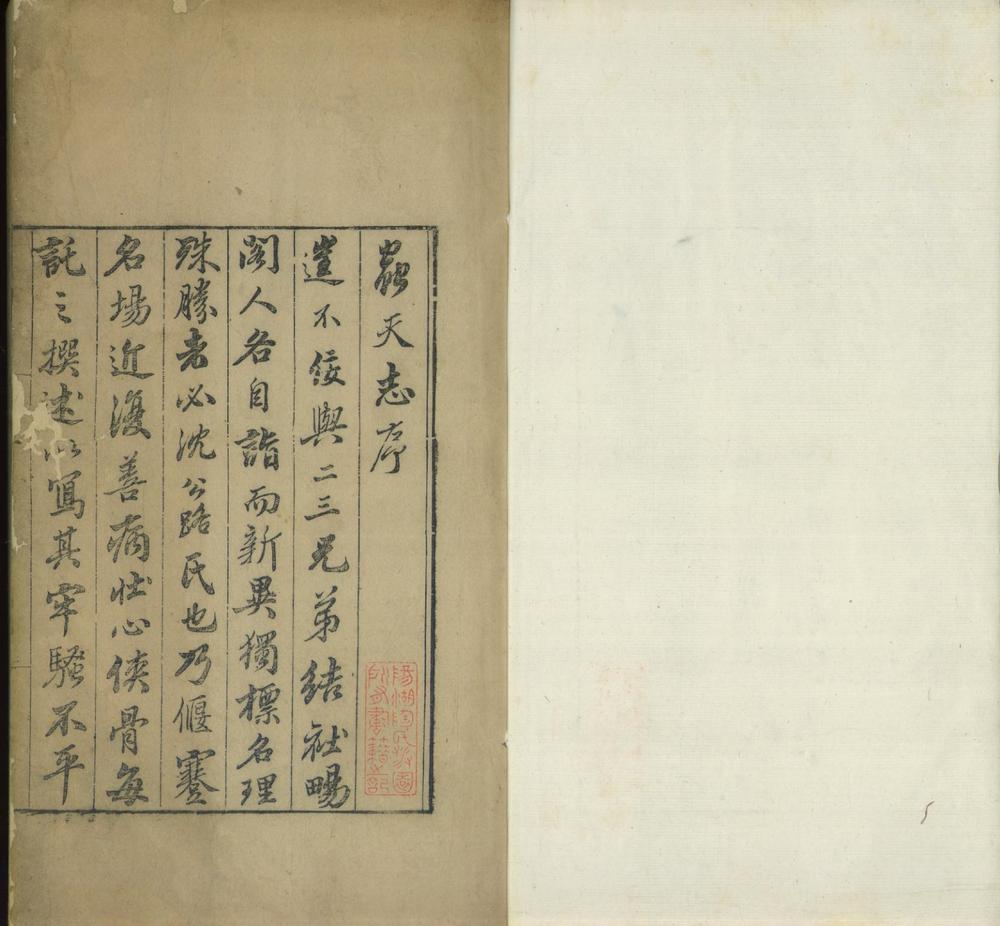 蟲天志序
不佞與二三兄弟結社暢
閣人各自詣而新異獨標名理
殊勝者必沈公路氏也乃偃蹇
名場近復善病壯心俠骨每
託之撰述以寫其牢騷不平
陽湖陶氏涉園
所有書籍之記
5